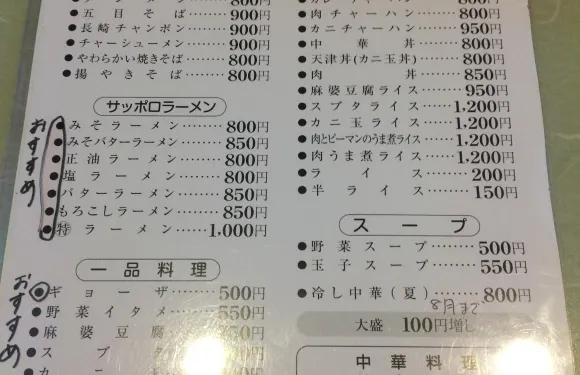 800円
●五目そば……900円
●長崎チャンポン……900円
●チャーシューメン……900円
●やわらかい焼きそば……800円
●揚やきそば……800円
サッポロラーメン
おすすめ
●みそラーメン……800円
●みそバターラーメン……850円
●正油ラーメン……800円
●塩ラーメン……800円
●バターラーメン……850円
●もろこしラーメン……850円
●特ラーメン……1,000円
一品料理
おすすめ
●ギョーザ……500円
●野菜イタメ……550円
●麻婆豆腐
●スブタ
チャーハン……800円
●肉チャーハン……800円
●カニチャーハン……950円
●中華丼……800円
●天津丼(カニ玉丼)……800円
●肉丼……850円
●麻婆豆腐ライス……950円
●スブタライス……1,200円
●カニ玉ライス……1,200円
●肉とピーマンのうま煮ライス……1,200円
●肉うま煮ライス……1,200円
●ライス……200円
●半ライス……150円
スープ
●野菜スープ……500円
●玉子スープ……550円
●冷し中華(夏)……800円
8月まで
大盛 100円増し
中華料理